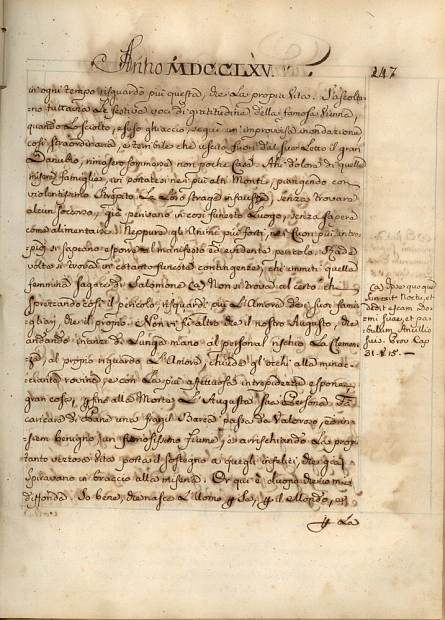 Anno MDCCLXV.
247
in ogni tempo risguardò più questa, che la propria Vita. S'ascolta-
no tuttavia le festive voci di gratitudine della famosa Vienna,
quando Losciolto, e fuso ghiaccio, seguì un' improvisa inondazione
così straordinaria, e terribile che uscito fuori dal suo Letto il gran
Danubio, rimasero sommerse non poche Case. Ahi dolore di quelle
misere famiglie, in portatesi ne più alti Monti, piangendo con
violentissimo la loro strage infausta, senza trovare
alcun soccorso, già penavano in così funesto Luogo, senza sapere
come alimentarsi. Neppure gli Animi più forti, ne i Cuori più intre-
pidi si sapeano esporre al manifesto ed evidente pericolo. Rade
volte si trova in cotanto funeste contingenze, chi immiti quella
femmina sagace di Salomone (a) Non si trova al certo che
sprezzando così il pericolo, risguardi più l'Amore de suoi fami
gliari, che il proprio. Non vi fu altro che il nostro Augusto, che
andando inanzi di lunga mano al personal rischio la Clemen-
za, al proprio riguardo l'Amore, chiude gl'occhi alla minac-
ciante rovina, e con la più affettuosa intrepidezza espone,
gran cosa, per fine alla Morte l'Augusta sua Persona. Fà
caricare di Pane una fragil Barca passa da Valoroso, ed in-
siem benigno un sdegnosissimo fiume, e arrischiando la pro-
tanto vezzosa vita porta il sostegno a quegli infelici, che già
spiravano in braccio alla miseria. Or qui è, dove
diffonda. So bene, che nasce l'Uomo per Se, per il Mondo,
per la
(a) de quoque
surrexit Nocte, et
dedit escam Do-
mesticis suis, et
Ancillis
suis. Prov. Cap
31. V. 15.